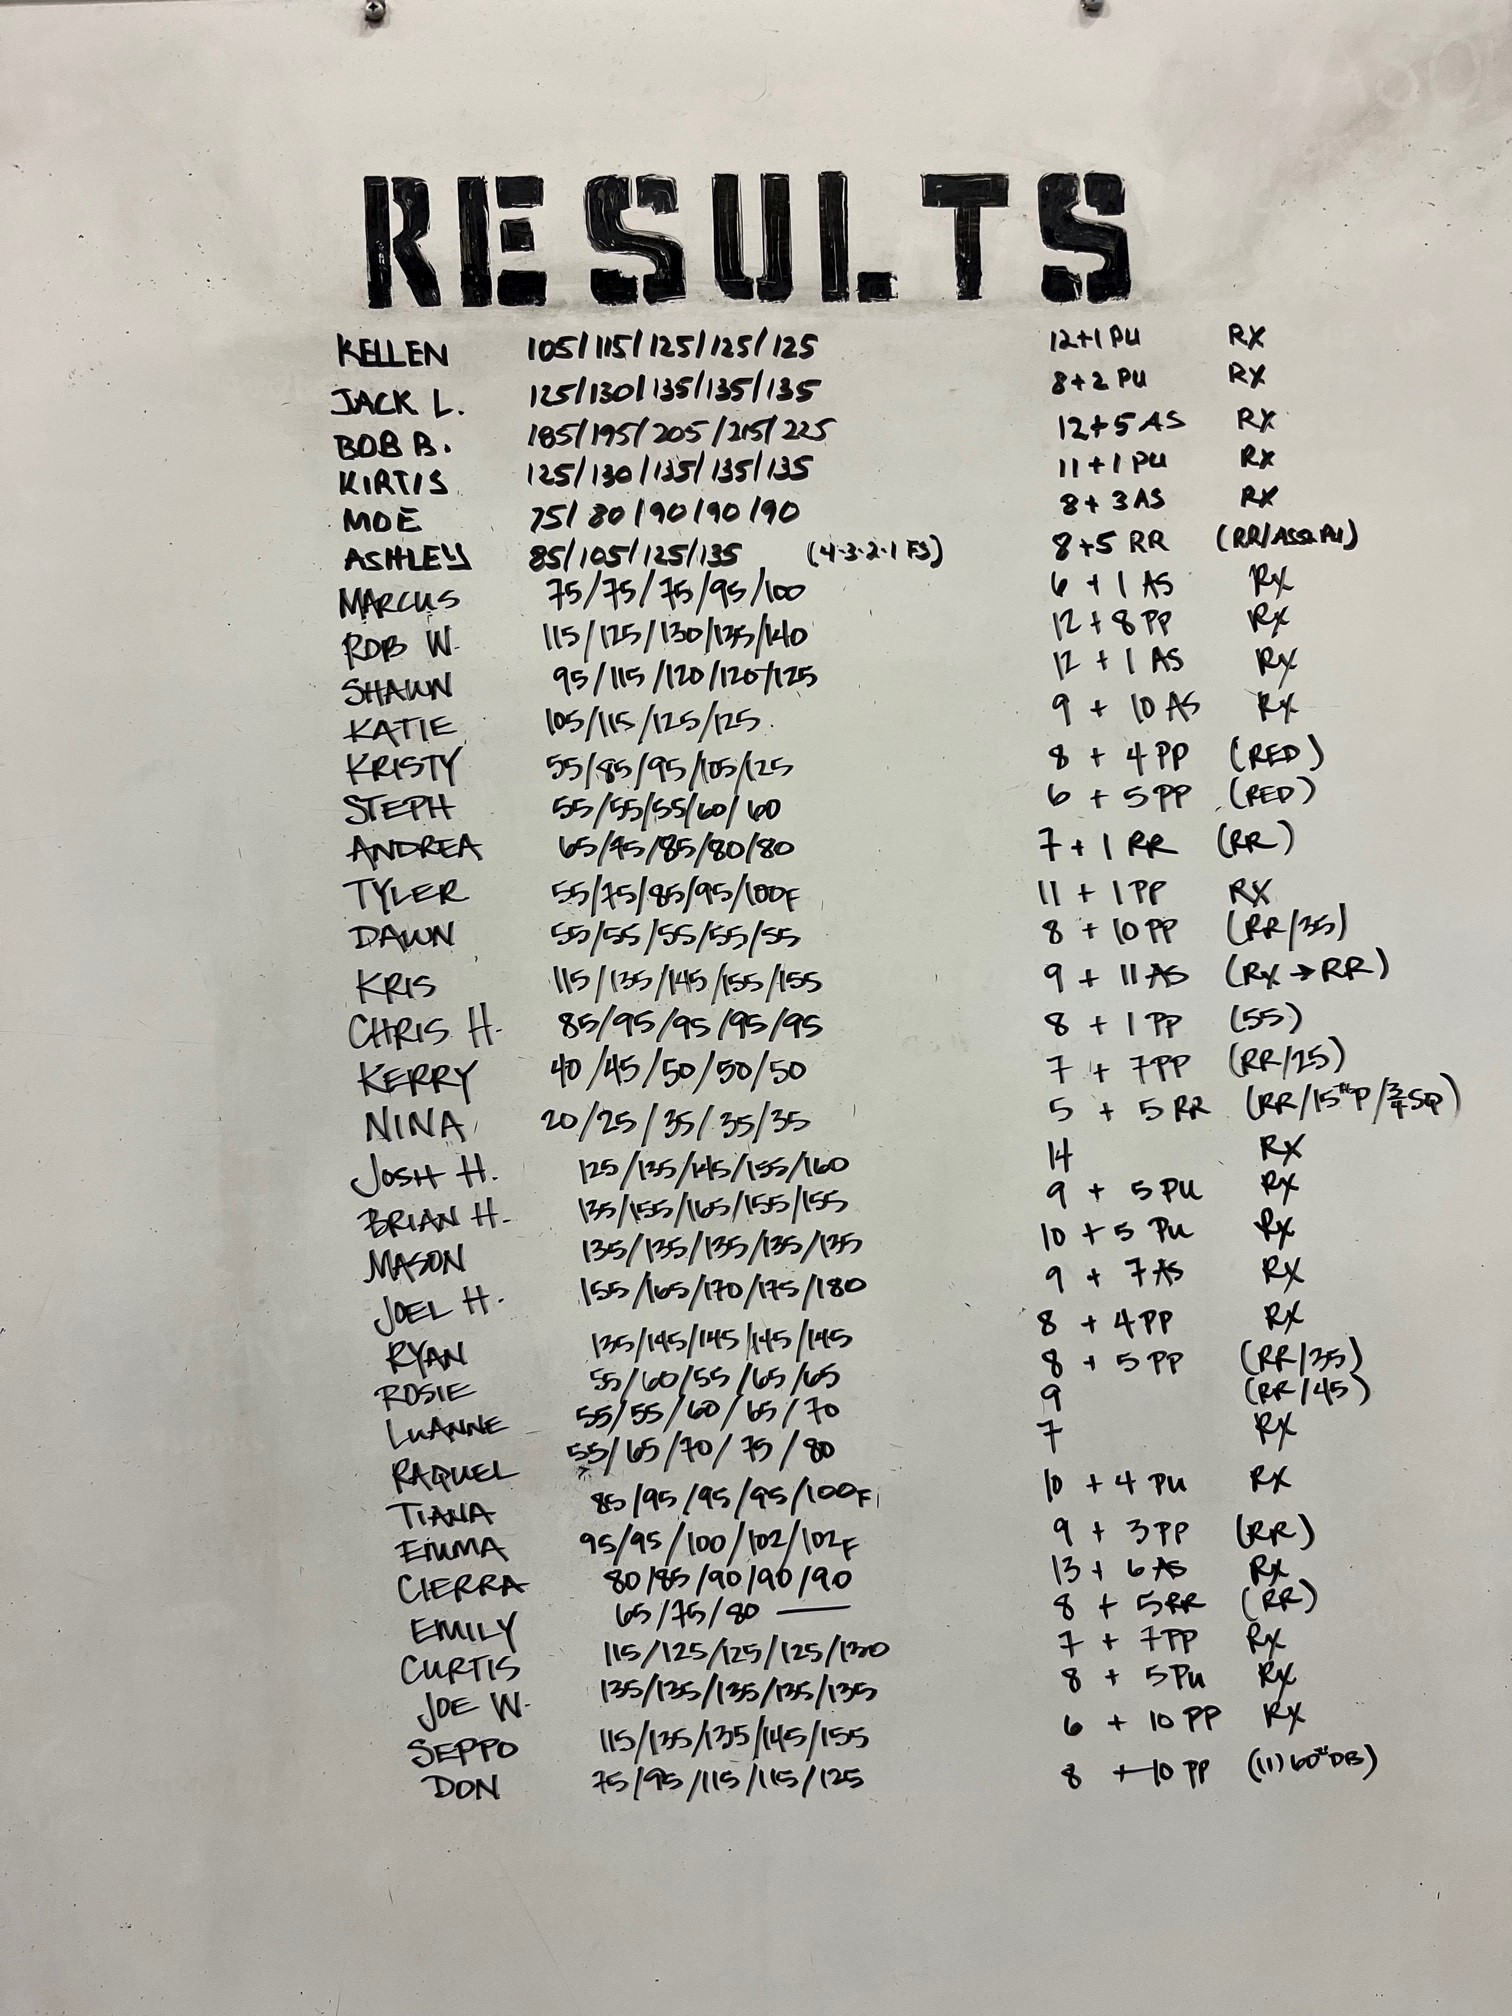 RESULTS
KELLEN 105/115/125/125/125 12+1 PU RX
JACK L. 125/130/135/135/135 8+2 PU RX
BOB B. 185/195/205/215/225 12+5 AS RX
KIRTIS 125/130/135/135/135 11+1 PU RX
MOE 75/80/90/90/90 8+3 AS RX
ASHLEY 85/105/125/135 (4-3-2-1 FS) 8+5 RR (RR/ASS. PU)
MARCUS 75/75/75/95/100 6 + 1 AS Rx
ROB W. 115/125/130/135/140 12 + 8 PP Rx
SHAWN 95/115/120/120/125 12 + 1 AS Rx
KATIE 105/115/125/125 9 + 10 AS Rx
KRISTY 55/85/95/105/125 8 + 4 PP (RED)
STEPH 55/55/55/60/60 6 + 5 PP (RED)
ANDREA 65/75/85/80/80 7 + 1 RR (RR)
TYLER 55/75/85/95/100F 11 + 1 PP RX
DAWN 55/55/55/55/55 8 + 10 PP (RR/35)
KRIS 115/135/145/155/155 9 + 11 AS (Rx → RR)
CHRIS H. 85/95/95/95/95 8 + 1 PP (55)
KERRY 40/45/50/50/50 7 + 7 PP (RR/25)
NINA 20/25/35/35/35 5 + 5 RR (RR/15# P/¾ SQ)
JOSH H. 125/135/145/155/160 14 RX
BRIAN H. 135/155/165/155/155 9 + 5 PU Rx
MASON 135/135/135/135/135 10 + 5 PU Rx
JOEL H. 155/165/170/175/180 9 + 7 AS RX
RYAN 135/145/145/145/145 8 + 4 PP RX
ROSIE 55/60/55/65/65 8 + 5 PP (RR/35)
LUANNE 55/55/60/65/70 9 (RR/45)
RAQUEL 55/65/70/75/80 7 RX
TIANA 85/95/95/95/100F 10 + 4 PU RX
EMMA 95/95/100/102/102F 9 + 3 PP (RR)
CIERRA 80/85/90/90/90 13 + 6 AS Rx
EMILY 65/75/80 — 8 + 5 RR (RR)
CURTIS 115/125/125/125/130 7 + 7 PP Rx
JOE W. 135/135/135/135/135 8 + 5 PU Rx
SEPPO 115/135/135/145/155 6 + 10 PP RX
DON 75/95/115/115/125 8 + 10 PP ((1) 60# DB)